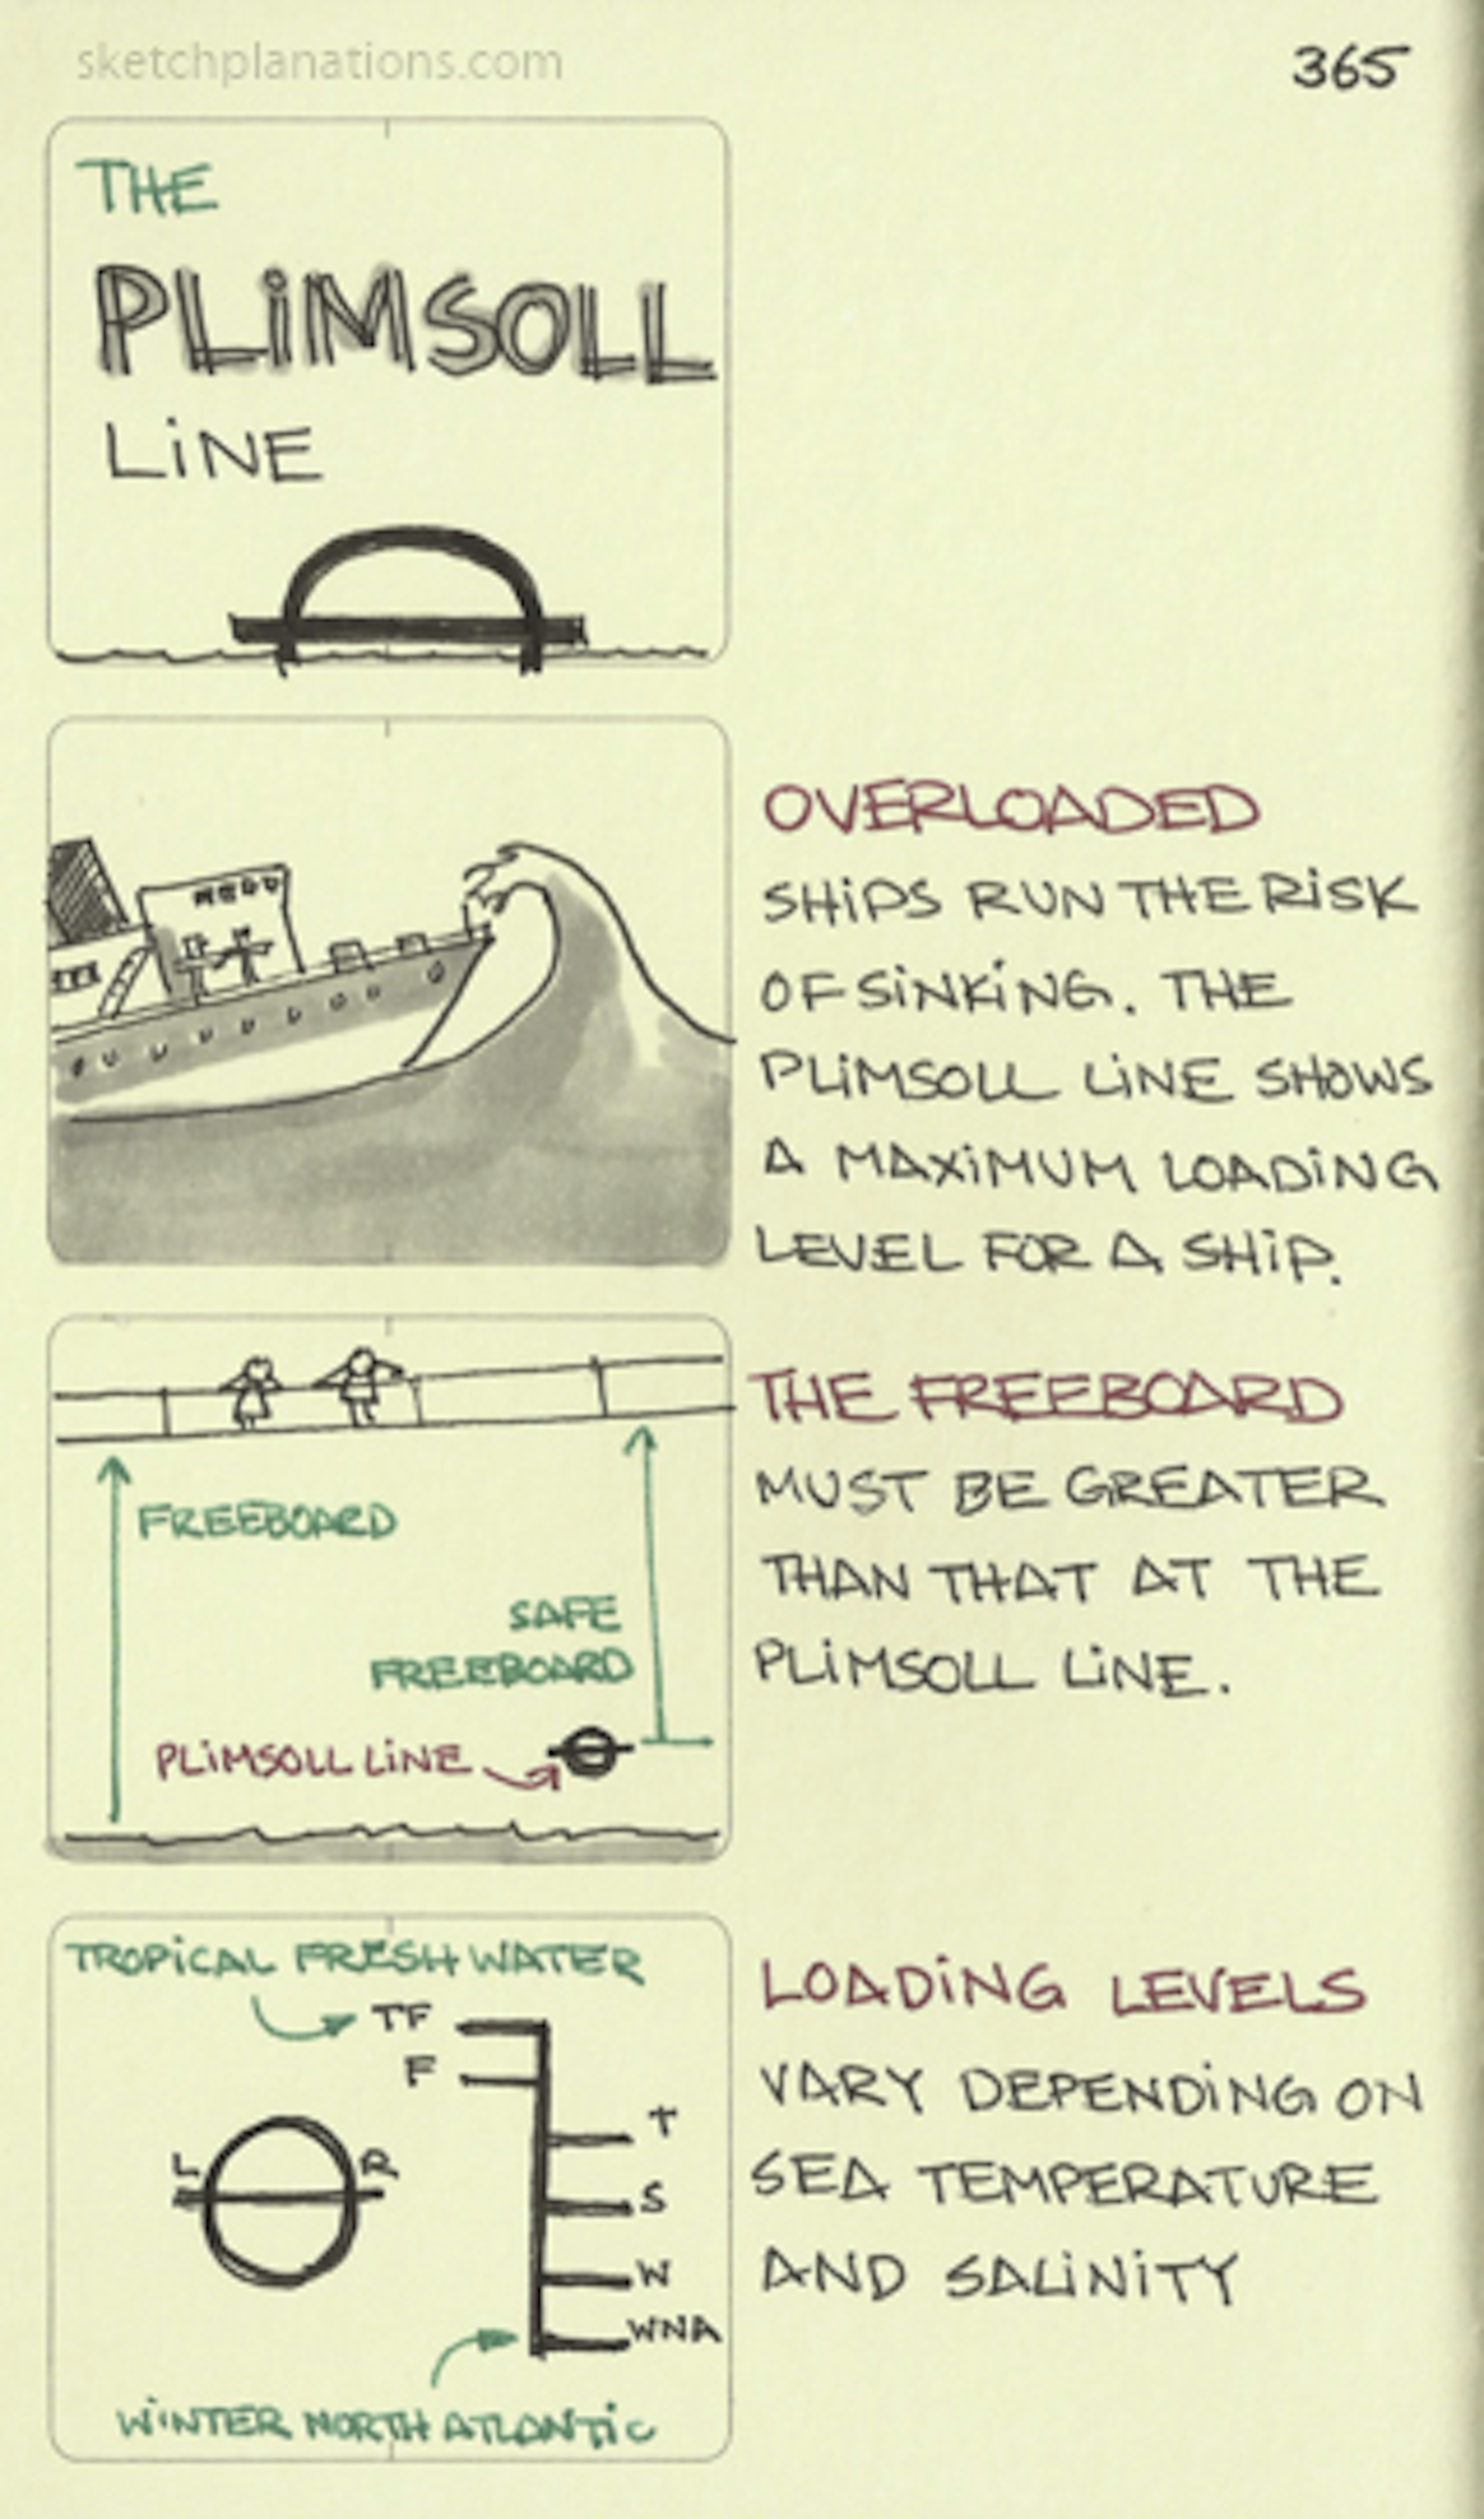 sketchplanations.com
365
THE
PLIMSOLL
LINE
OVERLOADED
SHIPS RUN THE RISK
OF SINKING. THE
PLIMSOLL LINE SHOWS
A MAXIMUM LOADING
LEVEL FOR A SHIP.
THE FREEBOARD
MUST BE GREATER
THAN THAT AT THE
PLIMSOLL LINE.
FREEBOARD
SAFE
FREEBOARD
PLIMSOLL LINE
TROPICAL FRESH WATER
TF
F
T
L R
S
W
WNA
WINTER NORTH ATLANTIC
LOADING LEVELS
VARY DEPENDING ON
SEA TEMPERATURE
AND SALINITY